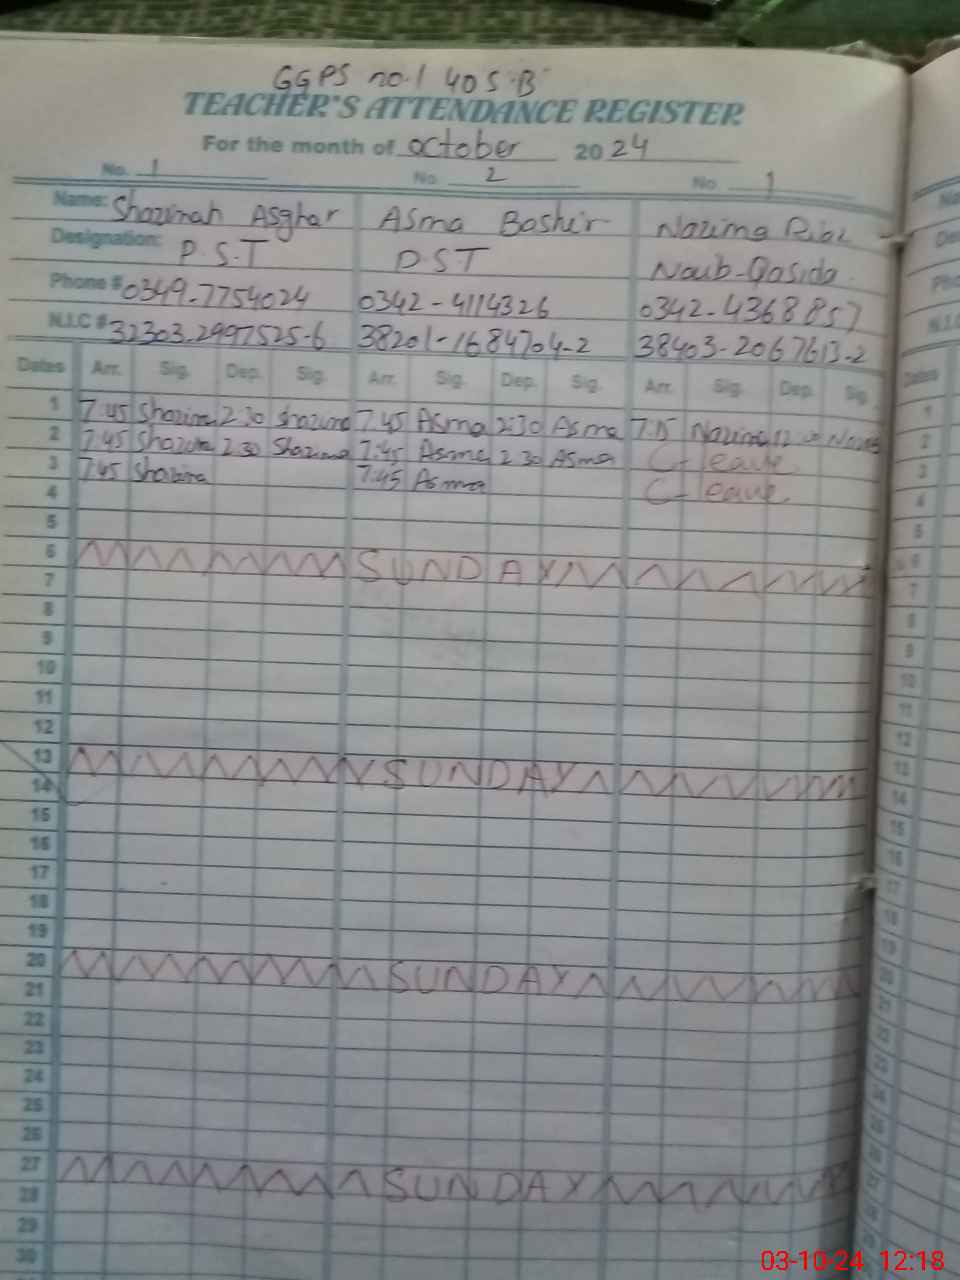 GGPS no.1 40 S.B
TEACHER'S ATTENDANCE REGISTER
For the month of October 2024
No. 1 No. 2 No. 1
Name: Shazinah Asghar Asma Bashir Nazima Riaz
Designation: P.S.T P.S.T Naib-Qasida
Phone # 0349-7754024 0342-4114326 0342-4368857
N.I.C # 32303-2997525-6 38201-1684704-2 38403-2067613-2
Dates Arr. Sig. Dep. Sig. Arr. Sig. Dep. Sig. Arr. Sig. Dep. Sig.
1 7:45 Shazina 2:30 Shazina 7:45 Asma 2:30 Asma 7:15 Nazima
2 7:45 Shazina 2:30 Shazina 7:45 Asma 2:30 Asma C-leave
3 7:45 Shazina 7:45 Asma C-leave
4
5
6 SUNDAY
7
8
9
10
11
12
13 SUNDAY
14
15
16
17
18
19
20 SUNDAY
21
22
23
24
25
26
27 SUNDAY
28
29
30
03-10-24 12:18